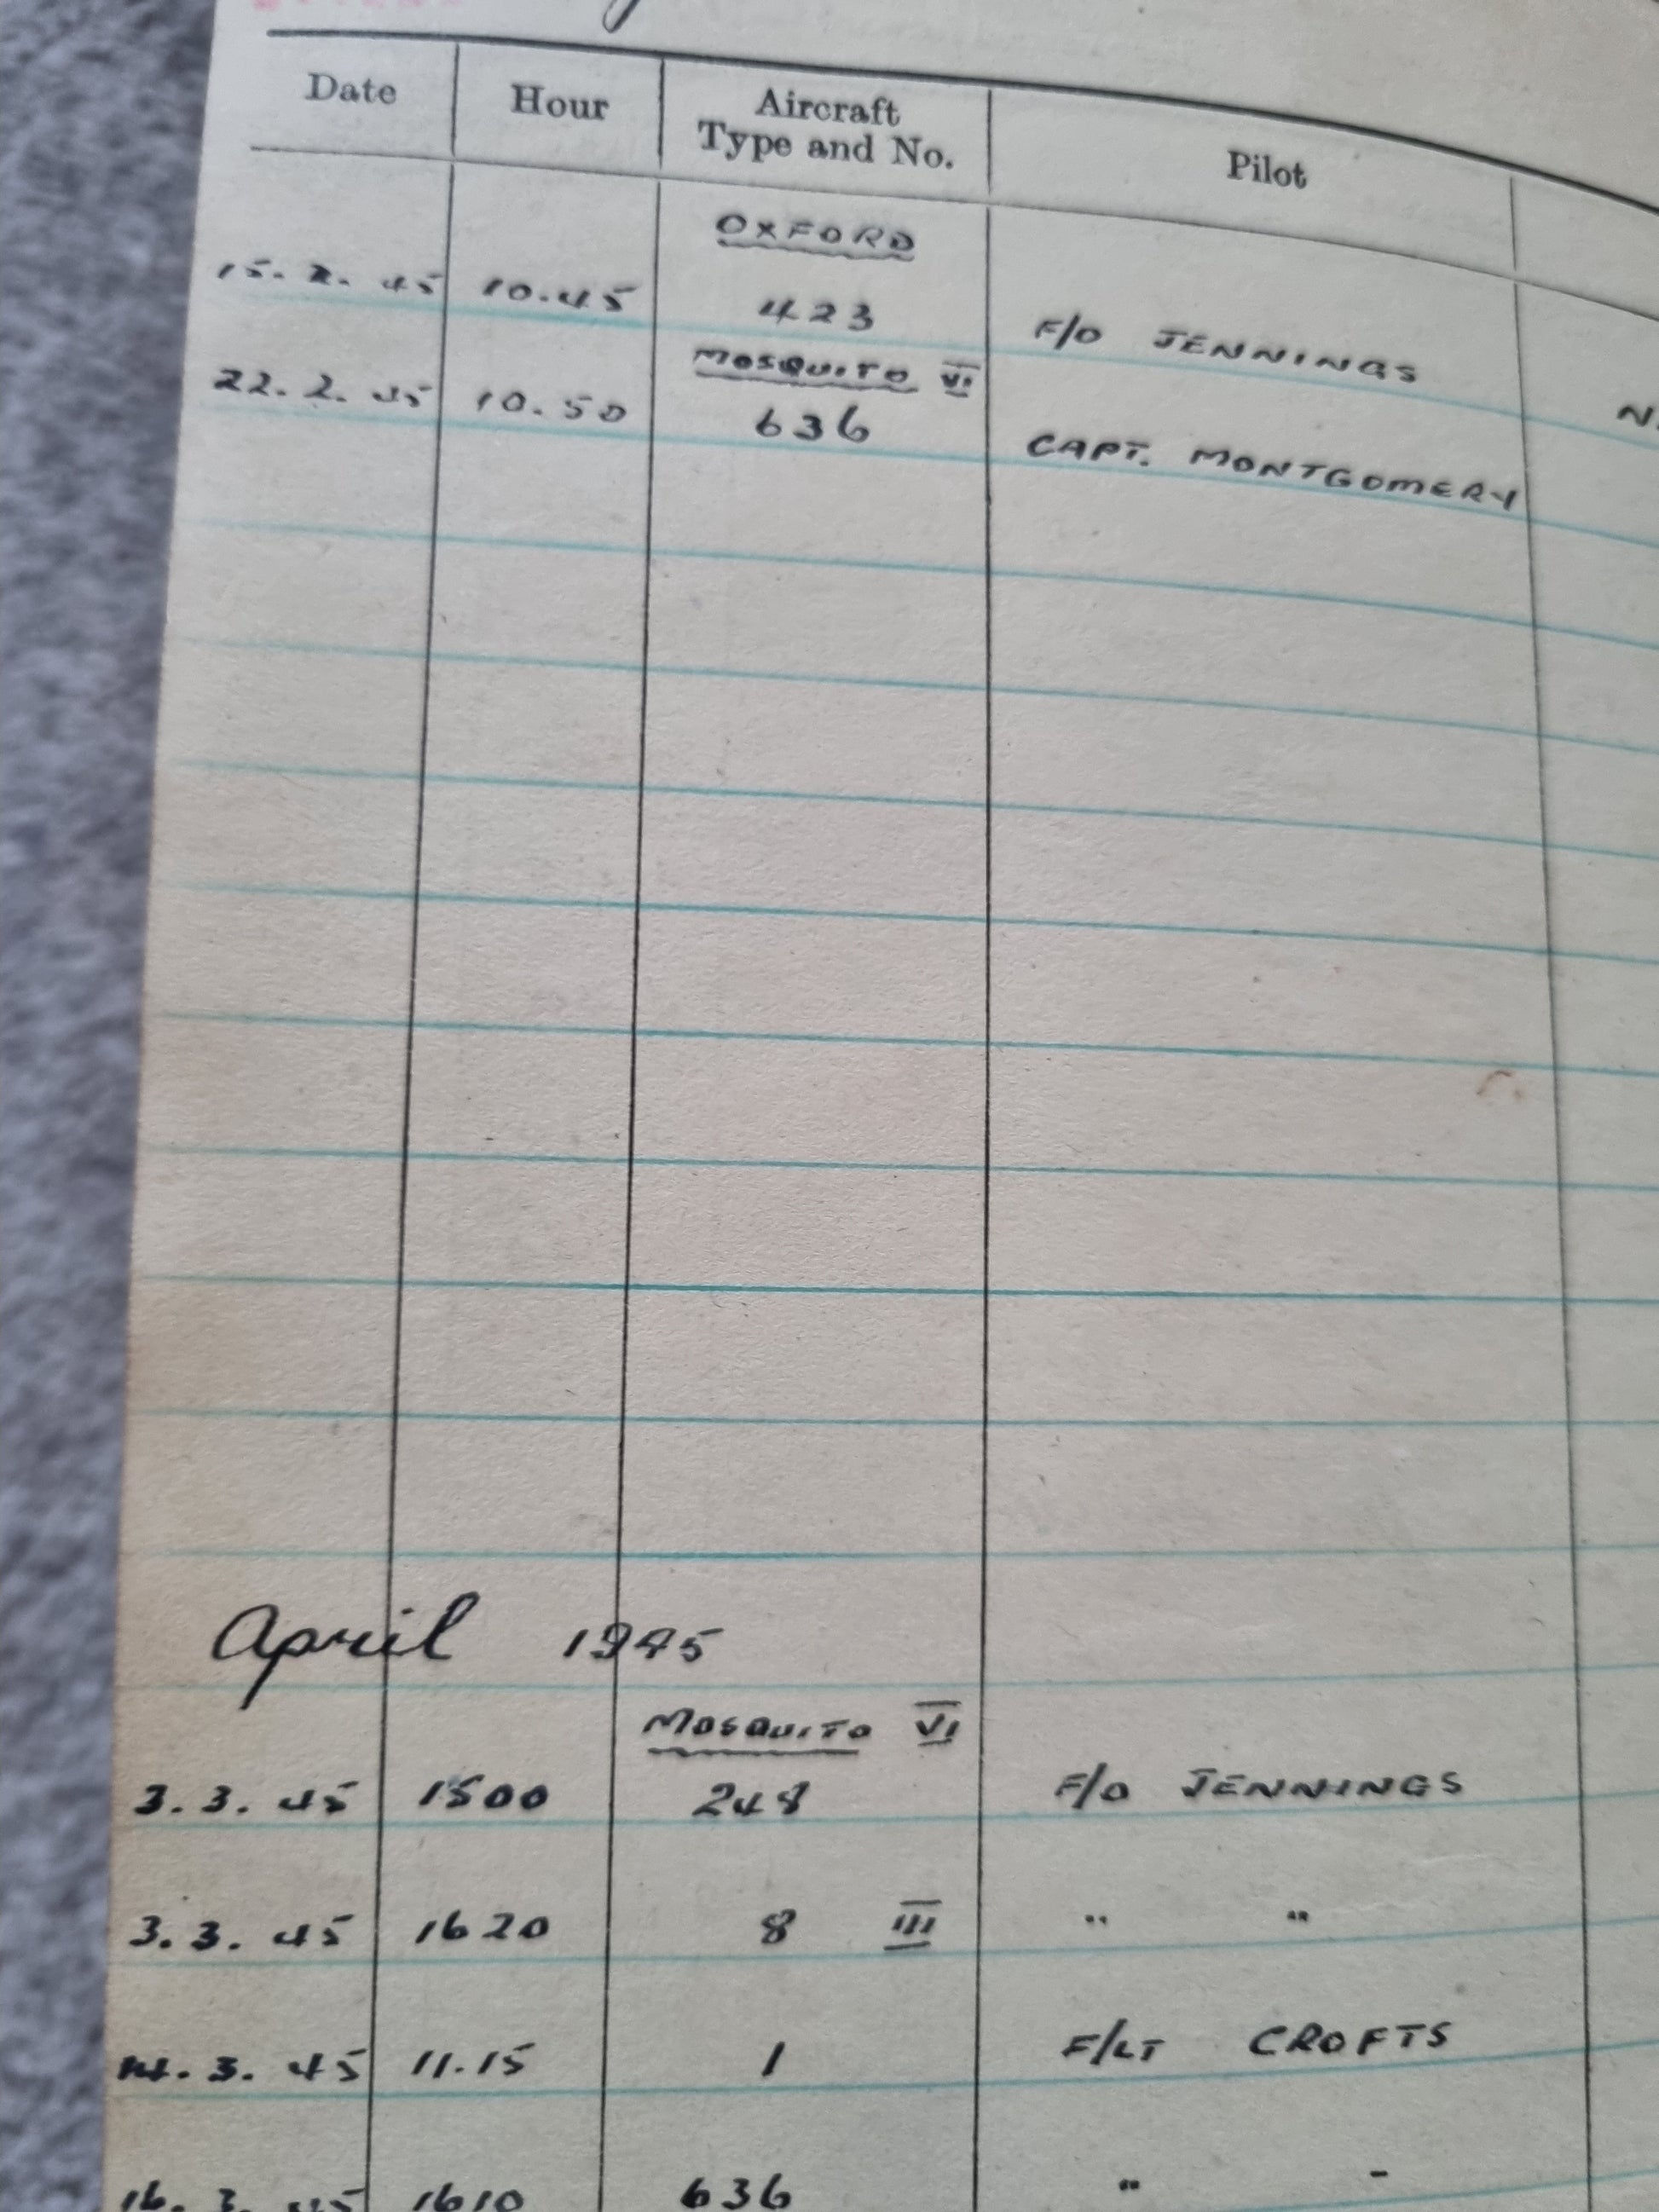 Date Hour Aircraft Type and No. Pilot
OXFORD
15. 2. 45 10.45 423 F/O JENNINGS
MOSQUITO VI
22. 2. 45 10.50 636 CAPT. MONTGOMERY
April 1945
MOSQUITO VI
3.3. 45 1500 248 F/O JENNINGS
3.3. 45 1620 8 III " "
14. 3. 45 11.15 1 F/LT CROFTS
16. 3. 45 1610 636 " "